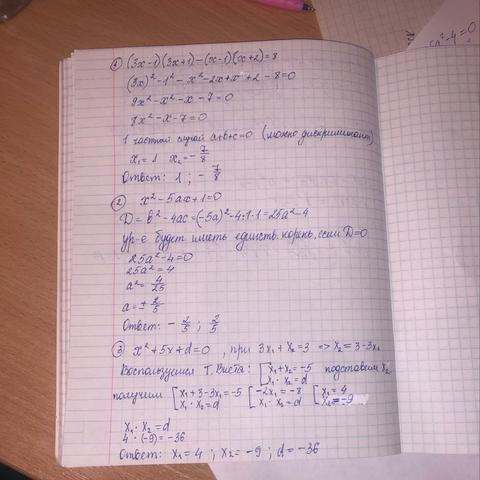 ① (3x-1)(3x+1)-(x-1)(x+2)=8
(3x)²-1²-x²-2x+x+2-8=0
9x²-x²-x-7=0
8x²-x-7=0
1 частный случай a+b+c=0 (можно дискриминант)
x₁=1 x₂=-7/8
Ответ: 1 ; -7/8
② x²-5ax+1=0
D=b²-4ac=(-5a)²-4·1·1=25a²-4
ур-е будет иметь единств. корень, если D=0
25a²-4=0
25a²=4
a²=4/25
a=±2/5
Ответ: -2/5 ; 2/5
③ x²+5x+d=0 , при 3x₁+x₂=3 => x₂=3-3x₁
Воспользуемся Т. Виета: [x₁+x₂=-5 подставим x₂
x₁·x₂=d
получим [x₁+3-3x₁=-5 [-2x₁=-8 [x₁=4
x₁·x₂=d x₁·x₂=d x₂=-9
x₁·x₂=d
4·(-9)=-36
Ответ: x₁=4 ; x₂=-9 ; d=-36